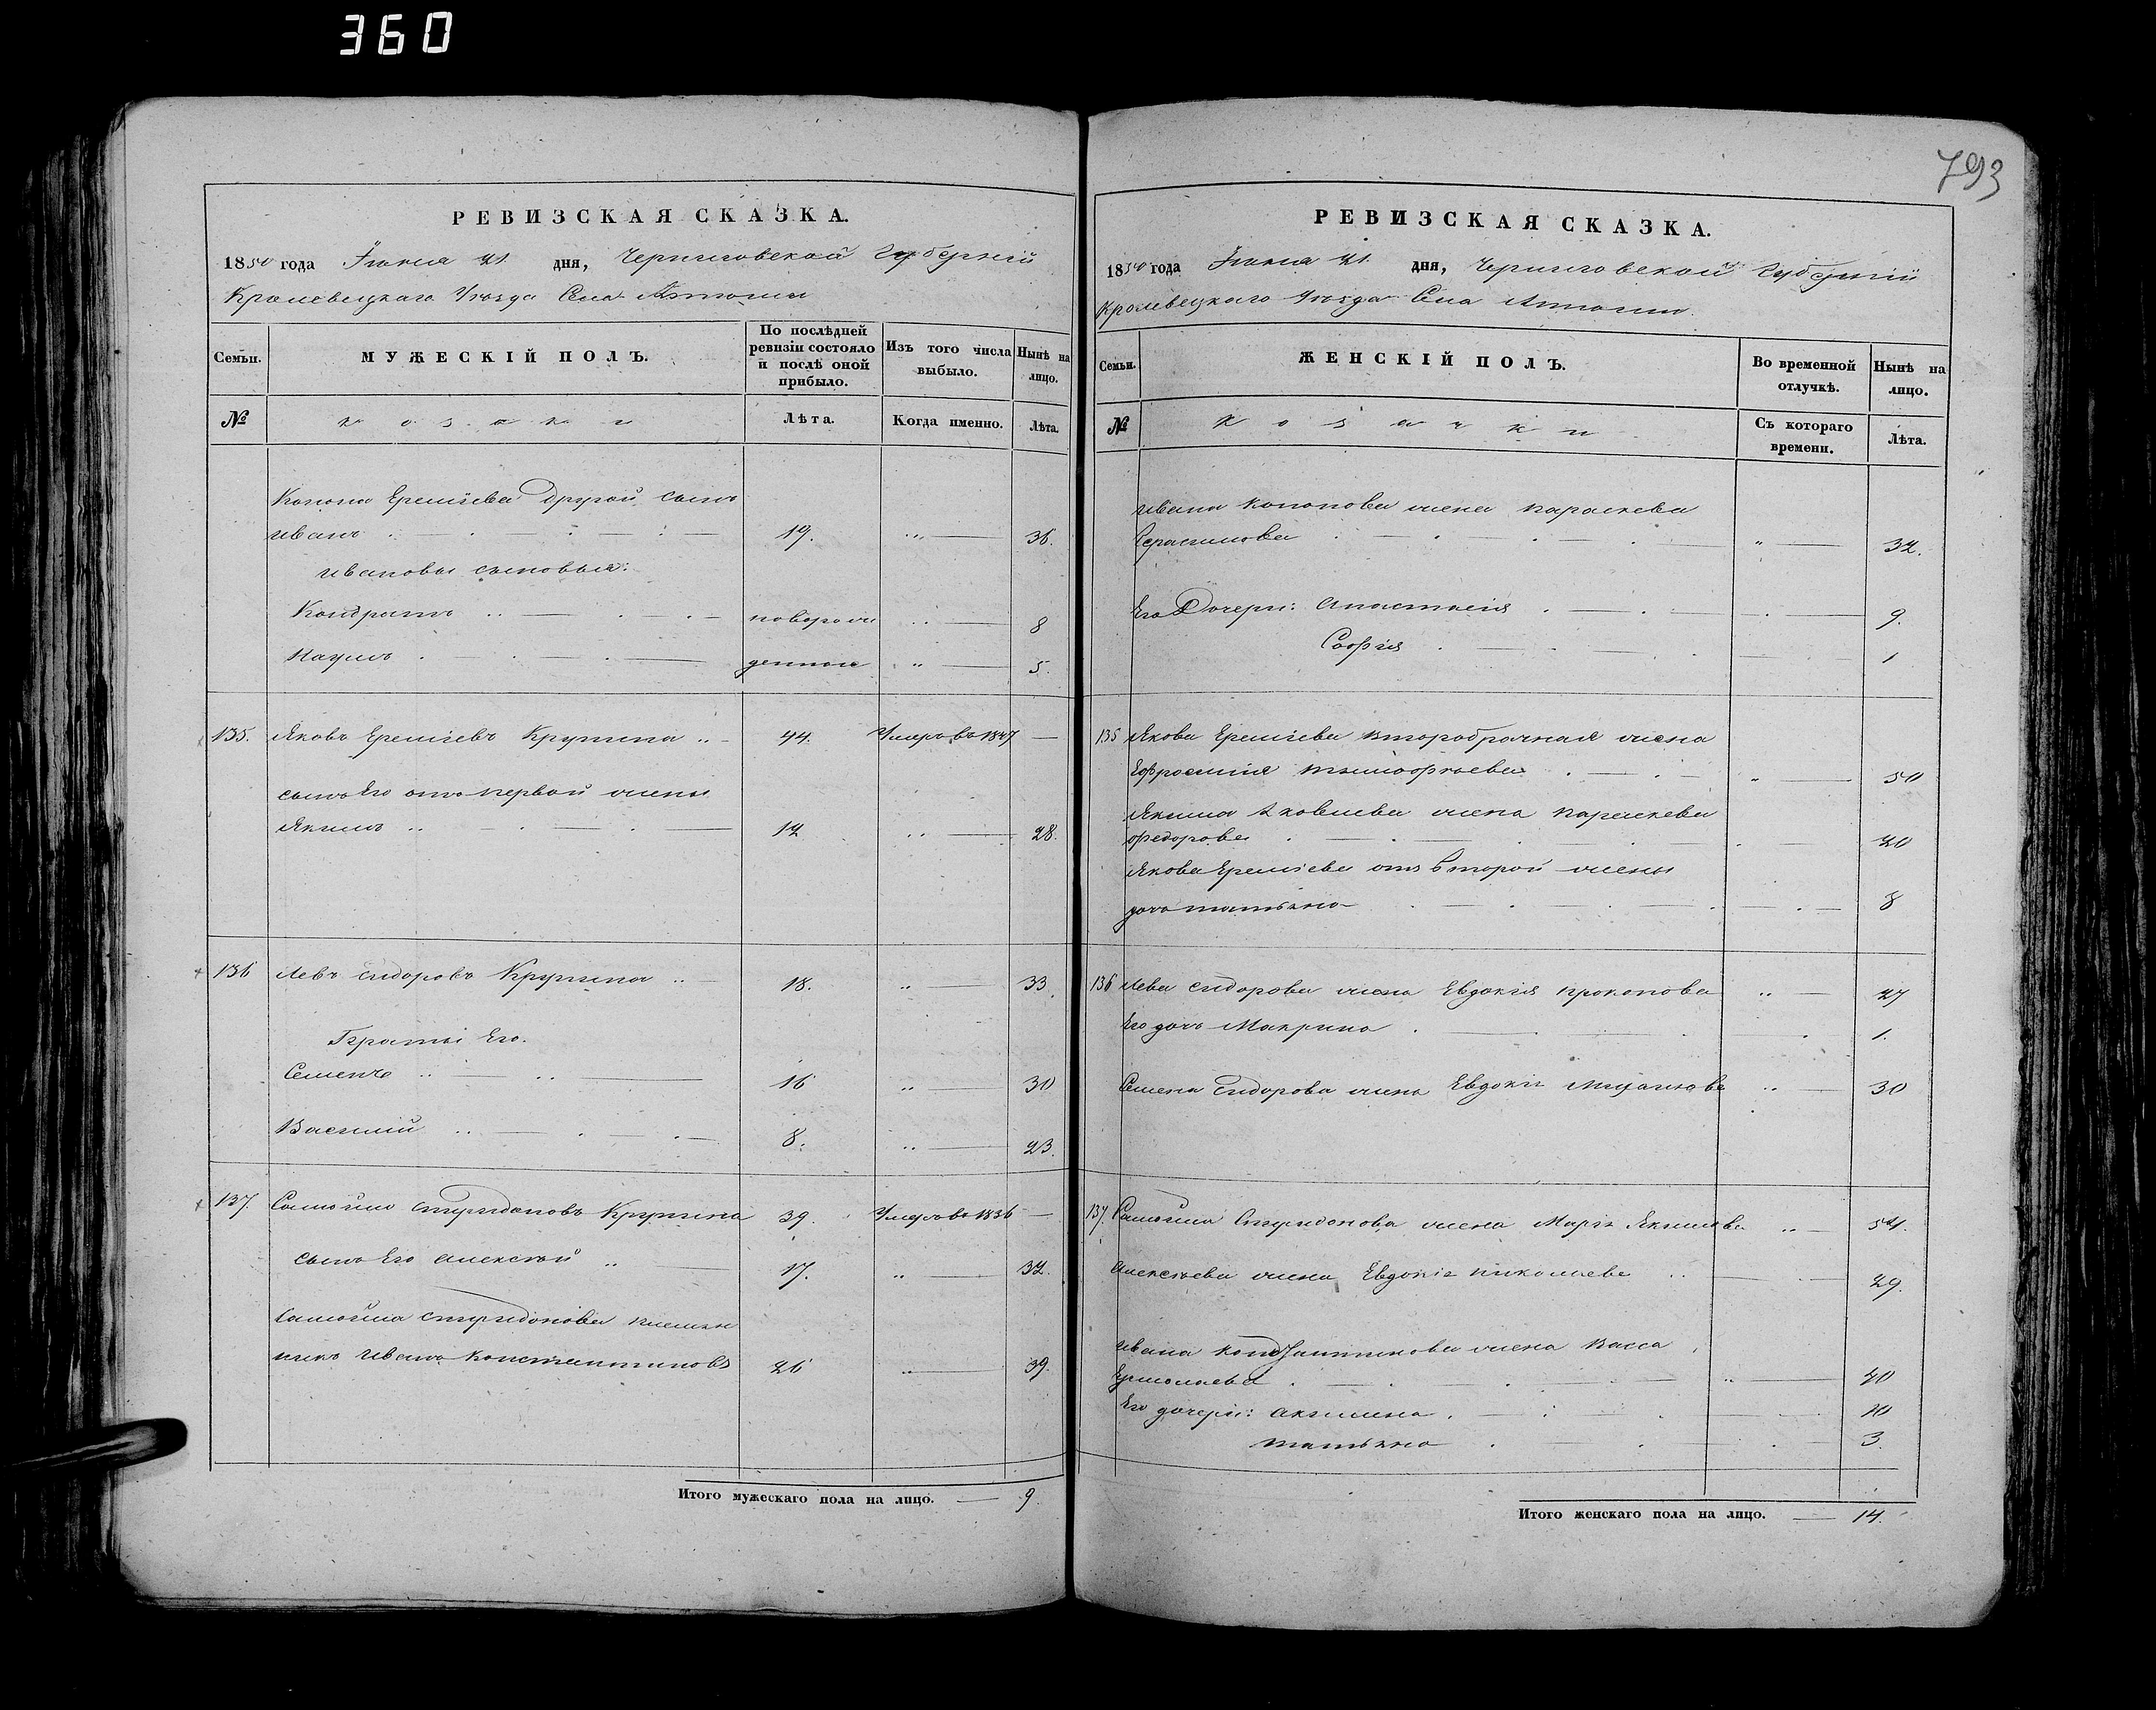 360
793
РЕВИЗСКАЯ СКАЗКА.
1850 года Іюня 21. дня, Черниговской Губерніи
Кролевецкаго Уѣзда Села
Семьи.
МУЖЕСКІЙ ПОЛЪ.
По послѣдней ревизіи состояло и послѣ оной прибыло.
Изъ того числа выбыло.
Нынѣ на лицо.
№
козаки
Лѣта.
Когда именно.
Лѣта.
Конона Еремѣева другой сынъ
Иванъ 19. 36.
Ивановы сыновья:
Кондратъ новорож 8
Наумъ денные 5.
135. Яковъ Еремѣевъ Крупина 44. Умеръ въ 1847 —
сынъ Его отъ первой жены
Якимъ 12 28.
136 Левъ Сидоровъ Крупина 18. 33.
Братьі Его.
Семенъ 16 30
Василій 8. 23.
137. Самойло Спиридоновъ Крупина 39. Умеръ въ 1836 —
сынъ Его Алексѣй 17. 32.
Самойла Спиридонова племян
никъ Иванъ Константиновъ 26 39.
Итого мужескаго пола на лицо. — 9.
РЕВИЗСКАЯ СКАЗКА.
1850 года Іюня 21. дня, Черниговской Губерніи
Кролевецкаго Уѣзда Села
Семьи.
ЖЕНСКІЙ ПОЛЪ.
Во временной отлучкѣ.
Нынѣ на лицо.
№
Козачки
Съ котораго времени.
Лѣта.
Ивана Кононова жена Параскева
Герасимова 32.
Его Дочери: Анастасія 9.
Софія 1
135 Якова Еремѣева второбрачная жена
Ефросинія Тимофѣева 50
Якима Яковлева жена Параскева
Федорова 20
Якова Еремѣева отъ второй жены
дочь Татьяна 8
136 Лева Сидорова жена Евдокія Прокопова 27
Его дочь Макрина 1.
Семена Сидорова жена Евдокія 30
137. Самойла Спиридонова жена Марія Якимова 54.
Алексѣева жена Евдокія Николаева 29.
Ивана Константинова жена Васса
Ермолаева 20
Его дочери: Акилина 10
Татьяна 3.
Итого женскаго пола на лицо. — 14.